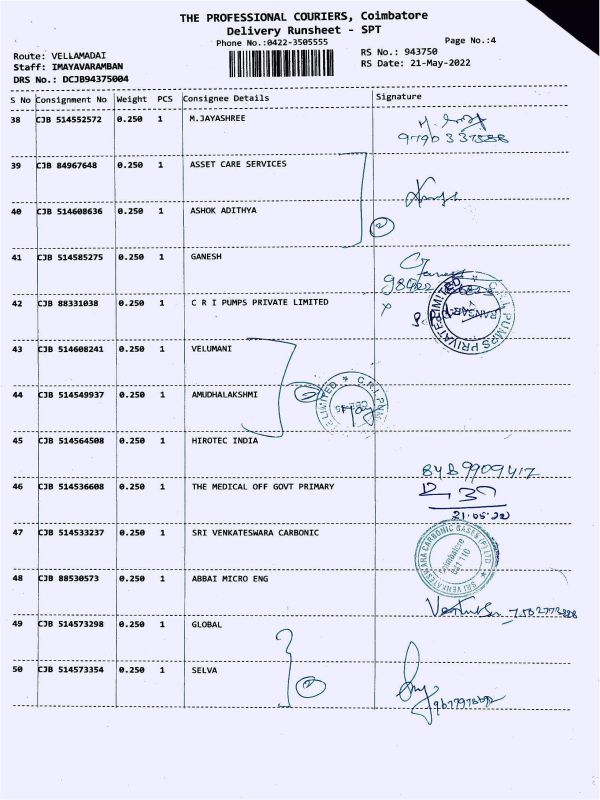 THE PROFESSIONAL COURIERS, Coimbatore
Delivery Runsheet - SPT
Phone No.:0422-3505555
Page No.:4
Route: VELLAMADAI
RS No.: 943750
Staff: IMAYAVARAMBAN
RS Date: 21-May-2022
DRS No.: DCJB94375004
S No Consignment No Weight PCS Consignee Details Signature
38 CJB 514552572 0.250 1 M.JAYASHREE
39 CJB 84967648 0.250 1 ASSET CARE SERVICES
40 CJB 514608636 0.250 1 ASHOK ADITHYA
2
41 CJB 514585275 0.250 1 GANESH
42 CJB 88331038 0.250 1 C R I PUMPS PRIVATE LIMITED
C.R.I. PUMPS PRIVATE LIMITED
43 CJB 514608241 0.250 1 VELUMANI
44 CJB 514549937 0.250 1 AMUDHALAKSHMI
45 CJB 514564508 0.250 1 HIROTEC INDIA
46 CJB 514536608 0.250 1 THE MEDICAL OFF GOVT PRIMARY
21.05.22
47 CJB 514533237 0.250 1 SRI VENKATESWARA CARBONIC
SRI VENKATESWARA CARBONIC GASES (P) LTD
Coimbatore
641 110
48 CJB 88530573 0.250 1 ABBAI MICRO ENG
49 CJB 514573298 0.250 1 GLOBAL
50 CJB 514573354 0.250 1 SELVA
2